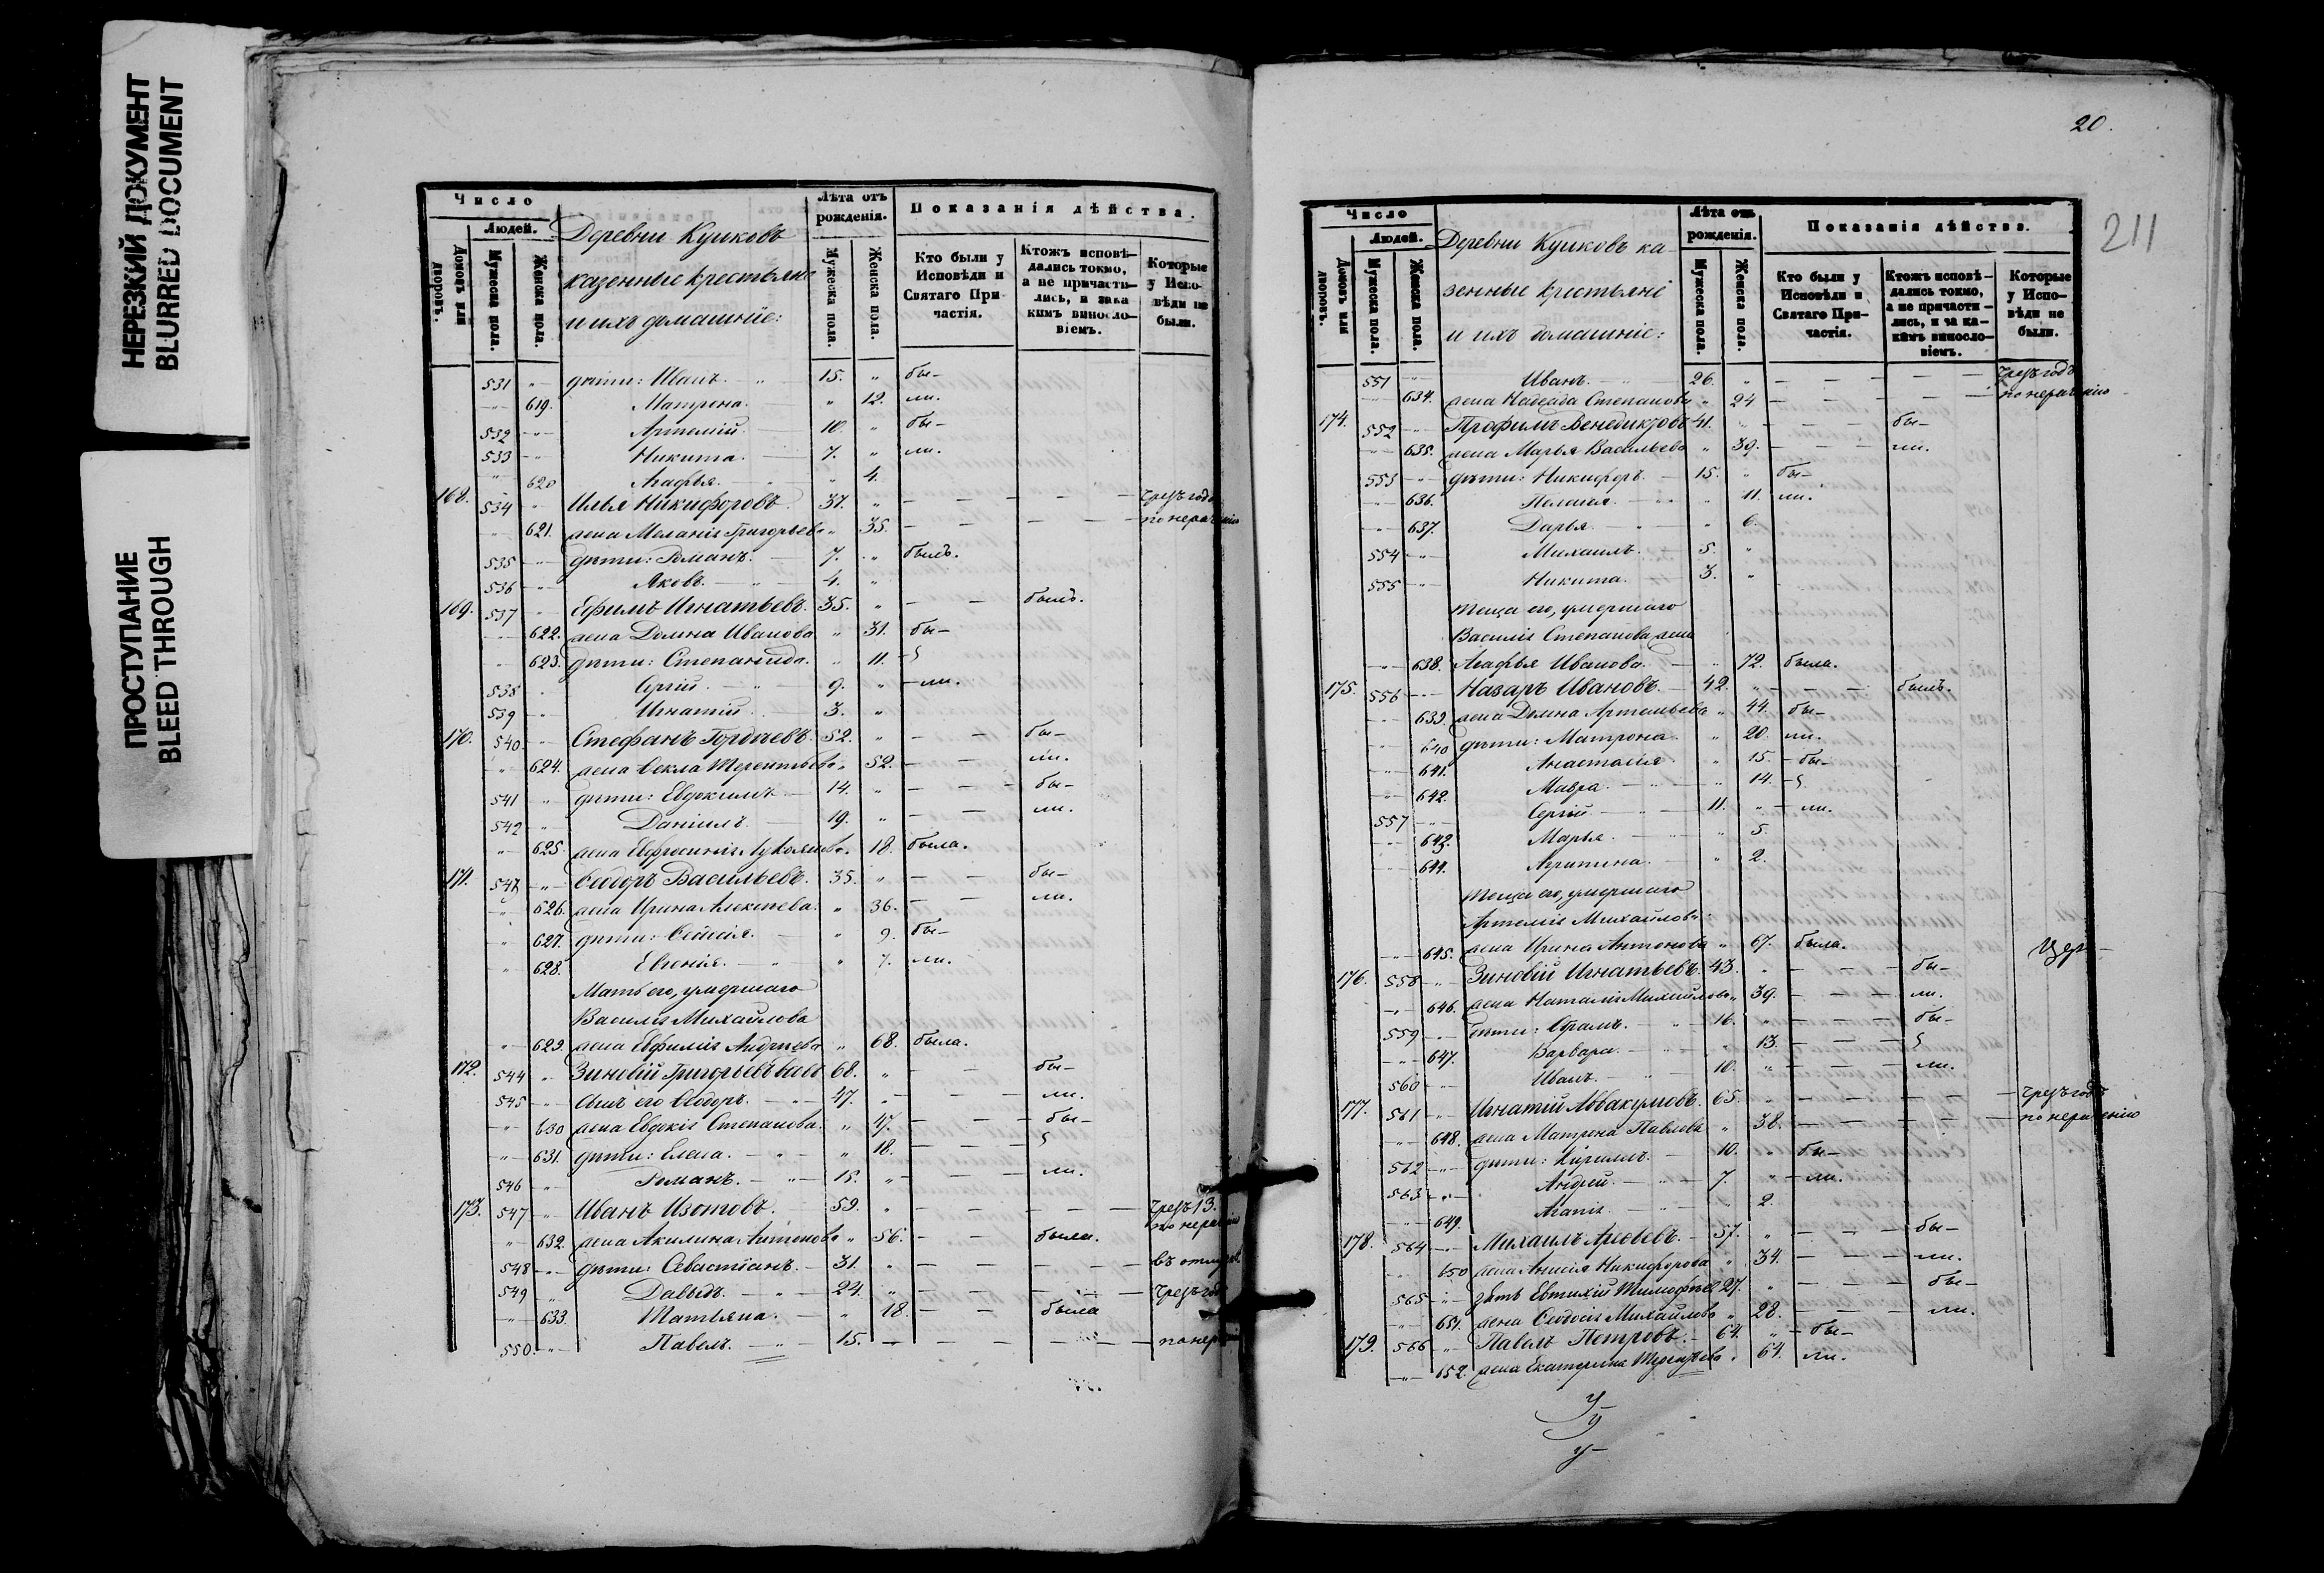 НЕРЕЗКИЙ ДОКУМЕНТ
BLURRED DOCUMENT
ПРОСТУПАНИЕ
BLEED THROUGH
Число
Людей.
Домовъ или дворовъ.
Мужеска пола.
Женска пола.
Деревни Куликовъ
казенные крестьяне
и ихъ домашніе:
Лѣта отъ рожденія.
Мужеска пола.
Женска пола.
Показанія дѣйства.
Кто были у Исповѣди и Святаго Причастія.
Ктожъ исповѣдались токмо, а не причастились, и зака кимъ винословіемъ.
Которые у Исповѣди не были.
531 " дѣти: Иванъ. " 15. " бы-
" 619. Матрона. " 12. ли.
532 " Артемій. 10. " бы-
533 " Никита. 7. " ли.
" 620 Агафья. " 4.
168. 534 " Илья Никифоровъ. 37. " чрезъ годъ
" 621. жена Меланія Григорьева " 35. по нераченію
535 " дѣти: Романъ. 7. " былъ.
536 " Яковъ. " 4. "
169. 537 " Ефимъ Игнатьевъ. 35. " былъ.
" 622. жена Домна Иванова " 31. бы-
" 623. дѣти: Степанида. " 11. -
538 " Сргій. " 9. " -ли.
539 " Игнатій. 3. "
170. 540 " Стефанъ Гордѣевъ. 52. " бы-
" 624. жена Ѳекла Терентьева " 52. ли.
541 " дѣти: Евдокимъ 14. " бы-
542 " Даніилъ. 19. " ли.
" 625. жена Евфросинія 18. была.
171. 543 " Ѳеодоръ Васильевъ. 35. " бы-
" 626. жена Ирина Алексѣева. " 36. ли.
" 627. дѣти: " 9. бы-
" 628. Евгенія. " " 7. ли.
Мать его, умершаго
Василія Михайлова
" 629. жена Евфимія Андреева " 68. была.
172. 544 " Зиновій Григорьевъ вдовъ 68. " бы-
545 " Сынъ его Ѳеодоръ. " 47. " ли.
" 630 жена Евдокія Степанова. " 47. бы-
" 631. дѣти: Елена. " " 18.
546 " Романъ. " 15. " ли.
173. 547 " Иванъ Изотовъ. 59. " чрезъ 13.
по нераченію
" 632. жена Акилина Антонова " 56. была.
548 " дѣти: Севастіанъ. 31. " въ
549 " Давыдъ. " 24. " чрезъ годъ
" 633. Татьяна. " 18. была
550. " Павелъ. " 15.
20.
211
Число
Людей.
Домовъ или дворовъ.
Мужеска пола.
Женска пола.
Деревни Куликовъ ка-
зенные крестьяне
и ихъ домашніе:
Лѣта отъ рожденія.
Мужеска пола.
Женска пола.
Показанія дѣйства.
Кто были у Исповѣди и Святаго Причастія.
Ктожъ исповѣдались токмо, а не причастились, и за какимъ винословіемъ.
Которые у Исповѣди не были.
551 " Иванъ. " 26. " чрезъ годъ
" 634. жена Надежда Степанова " 24 по нераченію
174. 552 " Трофимъ Венедиктовъ 41. " бы-
" 635. жена Марья Васильева " 39. ли.
553 " дѣти: Никифоръ. 15. " бы-
" 636. Пелагія. " " 11. ли.
" 637. Дарья. " " 6.
554 " Михаилъ. 5. "
555 " Никита. 3. "
Теща его, умершаго
Василія Степанова жена
" 638. Агафья Иванова. " 72. была.
175. 556 " Назаръ Ивановъ. 42. " былъ.
" 639. жена Домна Артемьева " 44. бы-
" 640 дѣти: Матрона. " 20. ли.
" 641. Анастасія. " 15. - бы-
" 642. Мавра. " " 14. -
557 " Сергій " 11. " ли.
" 643. Марья. " " 5.
" 644. Агрипина. " 2.
Теща его, умершаго
Артемія Михайлова
" 645. жена Ирина Антонова " 67. была.
176. 558 " Зиновій Игнатьевъ. 43. " бы-
" 646. жена Наталія Михайлова " 39. ли.
559 " дѣти: 16. " бы-
" 647. Варвара. " " 13.
560 " Иванъ. " 10. " ли.
177. 561 " Игнатій Аввакумовъ. 65. " чрезъ годъ
" 648. жена Матрона Павлова " 38. по нераченію
562 " дѣти: Кирилъ. 10. " бы-
563 " Андрей. " 7. " ли.
" 649. Агапія. " " 2.
178. 564 " Михаилъ Арефьевъ. 57. " бы-
" 650 жена Анисія Никифорова " 34. ли.
565 " зять Евтихій Тимофѣев 27. " бы-
" 651. жена Ѳеодосія Михайлова " 28. ли.
179. 566 " Павелъ Петровъ. 64. " бы-
" 652. жена Екатерина " 64. ли.